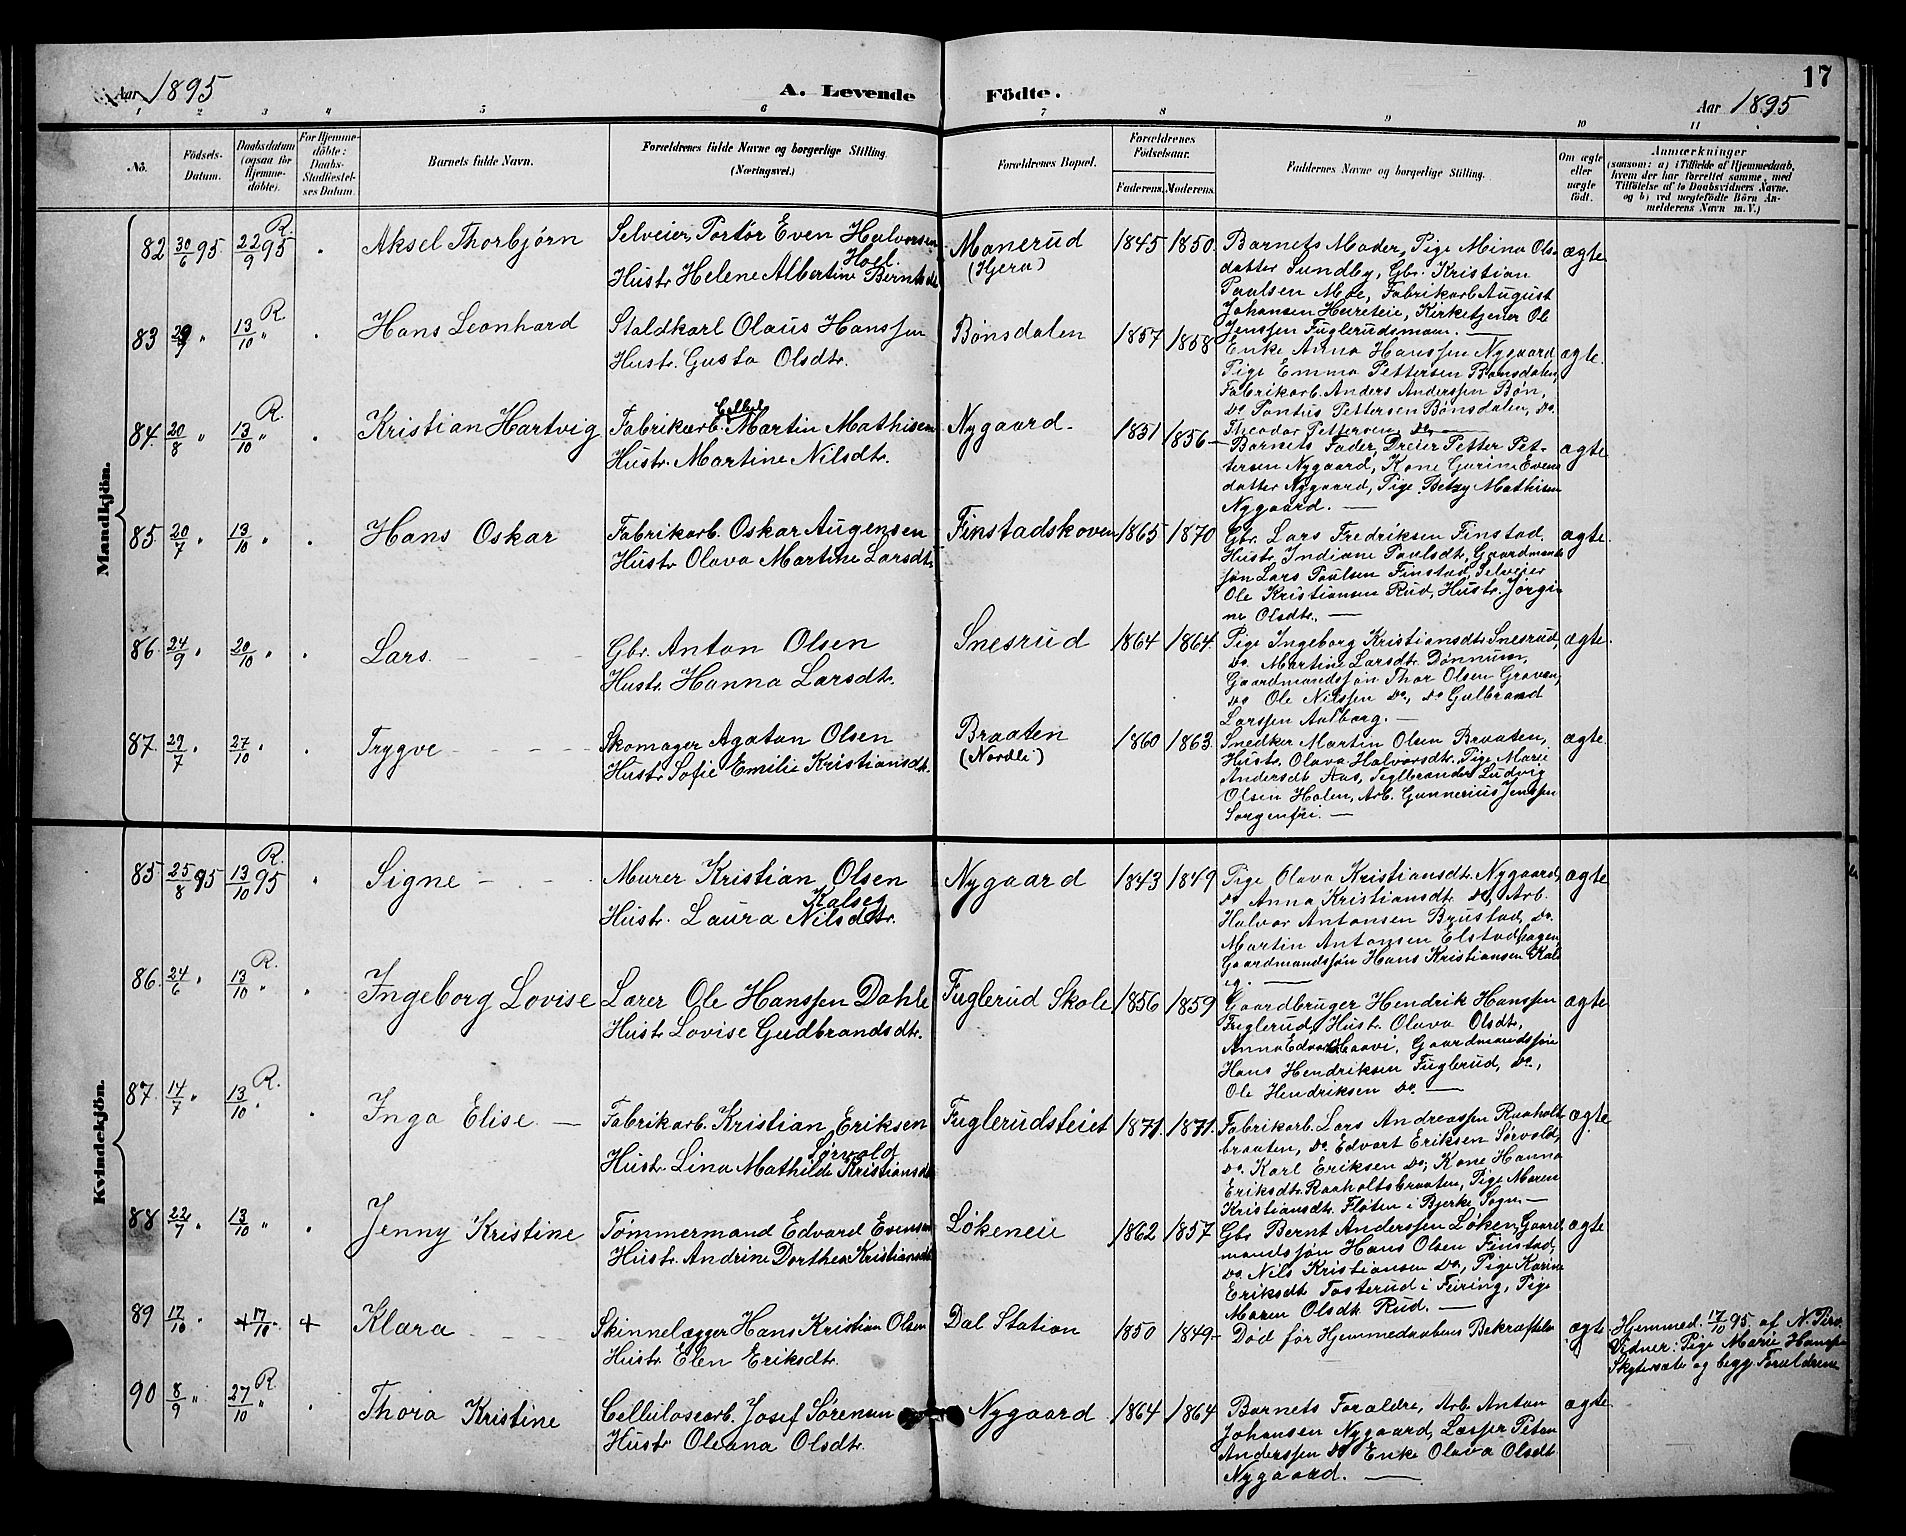 17
Aar 1895
A. Levende Födte.
Aar 1895
1 2 3 4 5 6 7 8 9 10 11
No.
Födsels-Datum.
Daabsdatum (ogsaa for Hjemmedöbte).
For Hjemmedöbte: Daabs-Stadfæstelses Datum.
Barnets fulde Navn.
Forældrenes fulde Navne og borgerlige Stilling.
(Næringsvei.)
Forældrenes Bopæl.
Forældrenes Födselsaar.
Faderens. Moderens.
Faddernes Navne og borgerlige Stilling.
Om ægte eller uægte födt.
Anmærkninger
(saasom: a) i Tilfælde af Hjemmedaab, hvem der har forrettet samme, med Tilföielse af to Daabsvidners Navne. og b) ved uægtefödte Börn Anmelderens Navn m. V.)
Mandkjön.
82 30/6 95 22/9 95 R. Aksel Thorbjørn
Selveier, Portør Even Halvorsen Hoel.
Hustr Helene Albertine Berntsdtr
Manerud
(Hjera)
1845 1850
Barnets Moder, Pige Mina Ols-
datter Sundby, Gbr. Kristian
Paulsen Moe, Fabrikarb August
Johansen Heireteie, Kirketjener Ole
Jenssen Fuglerudsmoen. —
ægte
83 29/9 " 13/10 " R. Hans Leonhard
Staldkarl Olaus Hanssen
Hustr. Gusta Olsdtr.
Bønsdalen
1857 1858
Enke Anna Hanssen Nygaard
Pige Emma Pettersen Bønsdalen,
Fabrikarb. Anders Anderssen Bøn,
Do Pontus Pettersen Bønsdalen, Do.
Theodor Pettersen Do —
ægte.
84. 20/8 " 13/10 " R. Kristian Hartvig
Fabrikarb. Martin Mathisen
Hustr. Martine Nilsdtr.
Nygaard.
1851 1856
Barnets Fader, Dreier Petter Pet-
tersen Nygaard, Kone Gurine Evens
datter Nygaard, Pige Betzy Mathisen
Nygaard. —
ægte
85. 20/7 " 13/10 " Hans Oskar
Fabrikarb. Oskar Augensen
Hustr Olava Martine Larsdtr.
Finstadskoven
1865 1870
Gbr. Lars Fredriksen Finstad,
Hustr. Indiane Paulsdt, Gaardmands
søn Lars Paulsen Finstad, Selveier
Ole Kristiansen Rud, Hustr. Jørgi-
ne Olsdtr. —
ægte.
86. 24/9 " 20/10 " Lars.
Gbr. Anton Olsen
Hustr. Hanna Larsdtr.
Snesrud
1864 1864.
Pige Ingeborg Kristiansdtr Snesrud,
Do. Martine Larsdtr. Dønnum,
Gaardmandssøn Thor Olsen Graven,
Do Ole Nilssen Do, Do Gulbrand
Larssen Aalborg. —
ægte.
87. 29/7 " 27/10 " Trygve
Skomager Agaton Olsen
Hustr Sofie Emilie Kristiansdtr.
Braaten
(Nordli)
1860 1863.
Snedker Martin Olsen Braaten,
Hustr. Olava Halvorsdtr. Pige Marie
Andersdt Aas, Teglbrænder Ludvig
Olsen Holen, Arb. Gunnerius Jenssen
Sorgenfri. —
ægte
Kvindekjön.
85 25/8 95 13/10 95 R. Signe
Murer Kristian Olsen Kalseg
Hustr. Laura Nilsdtr.
Nygaard
1843 1849
Pige Olava Kristiansdt. Nygaard,
Do Anna Kristiansdt Do, Arb.
Halvor Antonsen Brustad, Do.
Martin Antonsen Elstadhagen,
Gaardmandssøn Hans Kristiansen Kals
eg. —
ægte
86. 24/6 " 13/10 " R. Ingeborg Lovise
Lærer Ole Hanssen Dahle
Hustr Lovise Gudbrandsdtr.
Fuglerud Skole
1856 1859
Gaardbruger Hendrik Hanssen
Fuglerud, Hustr. Olava Olsdtr,
Anna Edvards Haavi, Gaardmandssøn
Hans Hendriksen Fuglerud, Do.,
Ole Hendriksen Do —
ægte
87. 14/7 " 13/10 " R. Inga Elise. —
Fabrikarb. Kristian Eriksen Sørvold
Hustr. Lina Mathilde Kristiansdtr
Fuglerudsteiet
1871. 1871.
Fabrikarb. Lars Andreassen Raaholt-
braaten, Do. Edvart Eriksen Sørvold,
Do. Karl Eriksen Do; Kone Hanna
Eriksdtr Raaholtsbraaten, Pige Maren
Kristiansdt. Fløten i Bjerke Sogn. —
ægte
88 22/7 " 13/10 " Jenny Kristine
Tømmermand Edvard Evensen
Hustr. Andrine Dorthea Kristiansdt
Løkeneie
1862 1857
Gbr Bernt Anderssen Løken, Gaard
mandssøn Hans Olsen Finstad,
Do. Nils Kristiansen Do, Pige Karine
Eriksdt Tosterud i Feiring, Pige
Maren Olsdt. Rud. —
ægte
89 17/10 " + 17/10 " + Klara
Skinnelægger Hans Kristian Olsen
Hustr. Elen Eriksdtr.
Dal Station
1850 1849
Død før Hjemmedaabens Bekræftelse
ægte
Hjemmed. 17/10 95 af N.
Vidner: Pige Marie Hanssen
og begge Forældrene
90 8/9 " 27/10 " R. Thora Kristine
Cellulosearb. Josef Sørensen
Hustr Oleana Olsdtr.
Nygaard
1864 1864
Barnets Forældre, Arb. Anton
Johansen Nygaard, Læsser Peter
Anderssen Do Enke Olava Olsdt
Nygaard. —
ægte